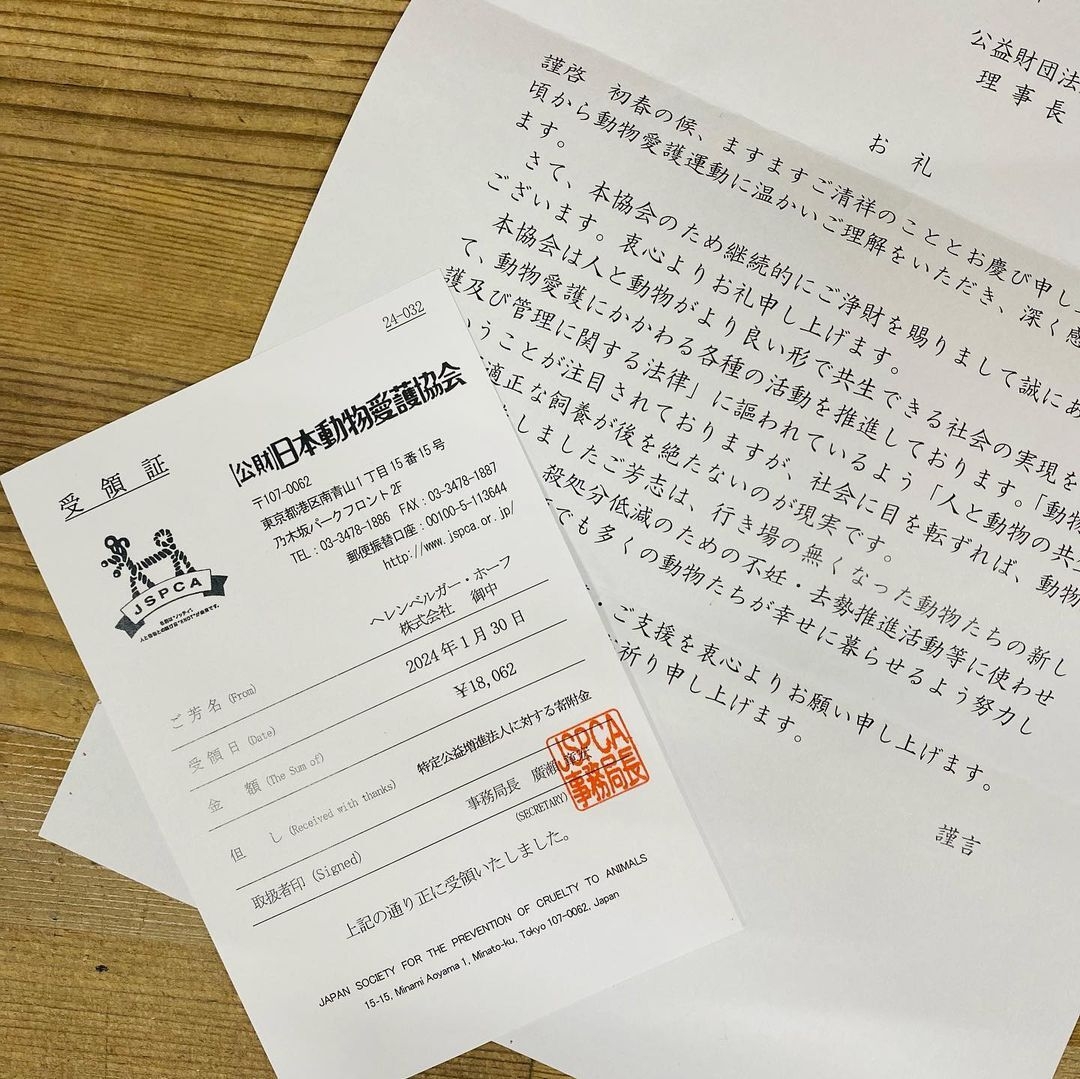 公益財団法
理事長
お 礼
謹啓　初春の候、ますますご清祥のこととお慶び申し
頃から動物愛護運動に温かいご理解をいただき、深く感
ます。
さて、本協会のため継続的にご浄財を賜りまして誠にあ
ございます。衷心よりお礼申し上げます。
本協会は人と動物がより良い形で共生できる社会の実現を
て、動物愛護にかかわる各種の活動を推進しております。「動物
護及び管理に関する法律」に謳われているよう「人と動物の共生
うことが注目されておりますが、社会に目を転ずれば、動物
適正な飼養が後を絶たないのが現実です。
しましたご芳志は、行き場の無くなった動物たちの新し
殺処分低減のための不妊・去勢推進活動等に使わせ
でも多くの動物たちが幸せに暮らせるよう努力し
・ご支援を衷心よりお願い申し上げます。
祈り申し上げます。
謹言
24-032
受 領 証
(公財)日本動物愛護協会
〒107-0062
東京都港区南青山1丁目15番15号
乃木坂パークフロント2F
TEL：03-3478-1886 FAX：03-3478-1887
郵便振替口座：00100-5-113644
http://www.jspca.or.jp/
JSPCA
ヘレンベルガー・ホーフ
株式会社　御中
ご芳名 (From)
受領日 (Date) 2024年1月30日
金　額 (The Sum of) ¥18,062
但　し (Received with thanks) 特定公益増進法人に対する寄附金
取扱者印 (Signed) 事務局長 廣瀬
(SECRETARY)
JSPCA
事務局長
上記の通り正に受領いたしました。
JAPAN SOCIETY FOR THE PREVENTION OF CRUELTY TO ANIMALS
15-15, Minami Aoyama 1, Minato-ku, Tokyo 107-0062, Japan